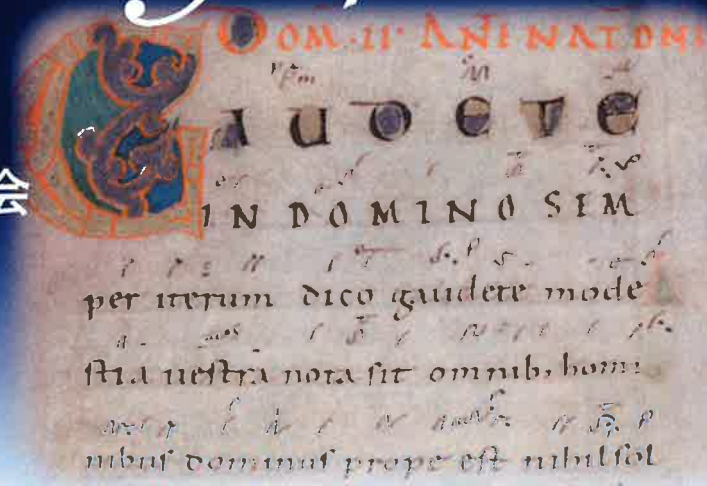 DOM·II· ANT NAT DNI
GAUDETE
IN DOMINO SEM
per iterum dico gaudete mode
stia uestra nota sit omnib; homi
nibus dominus prope est nihil sol